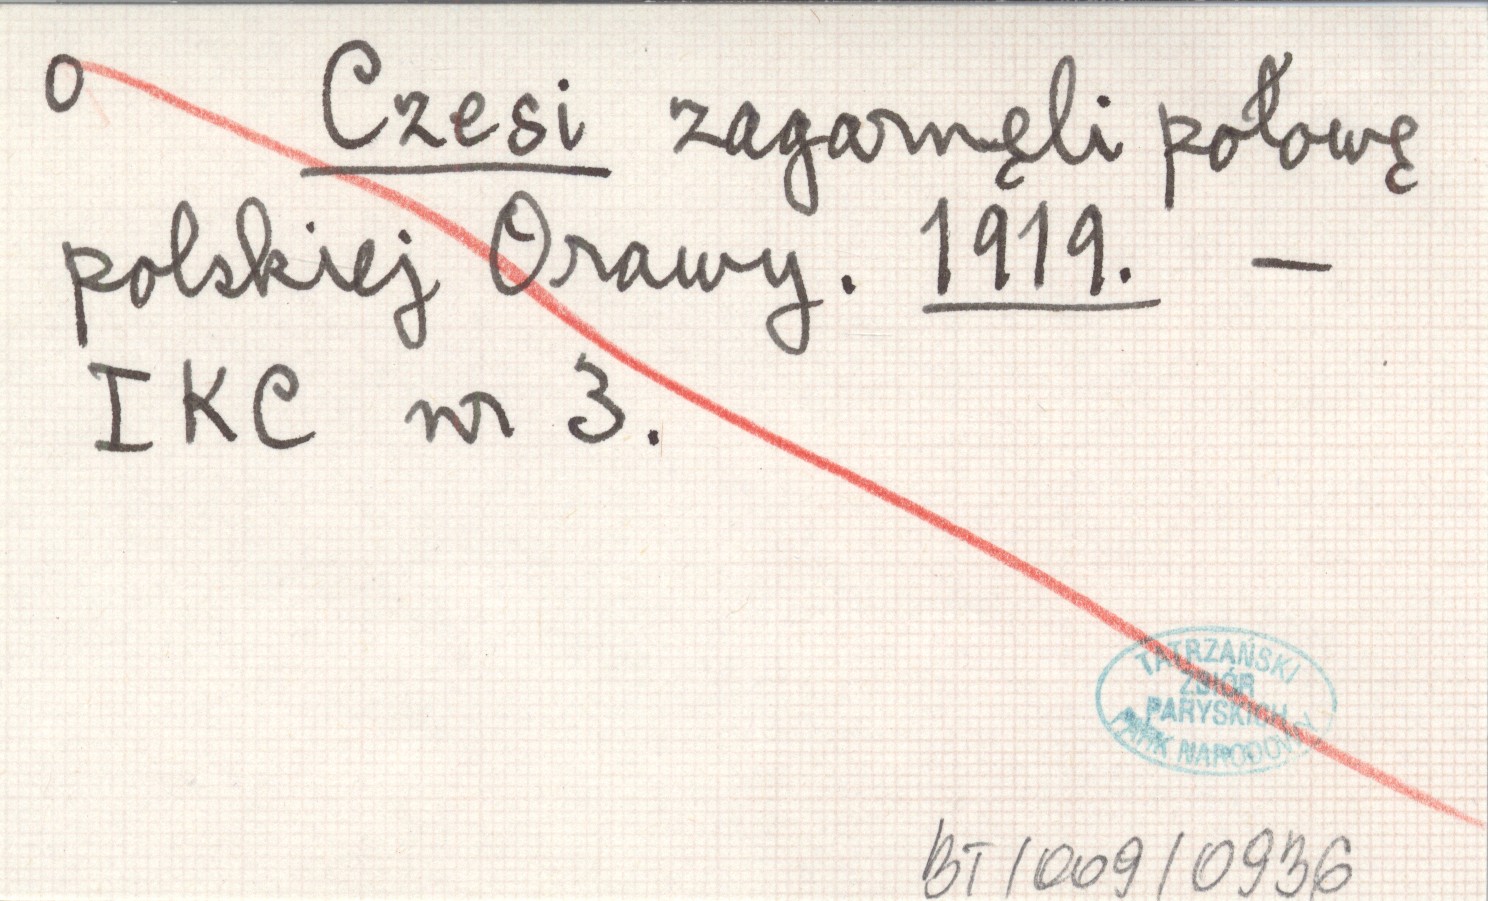 O Czesi zagarnęli połowę
polskiej Orawy. 1919. –
IKC nr 3.
TATRZAŃSKI
ZBIÓR
PARYSKICH
PARK NARODOWY
BT/009/0936